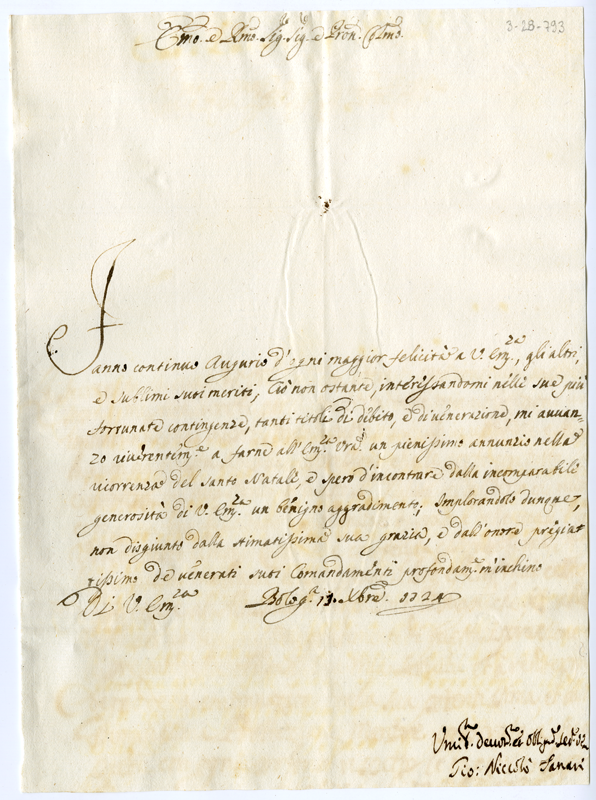 3-28-793
Emo. e Rmo. Sig. Sig. e Pron. Colmo.
Fanno continuo Augurio d'ogni maggior felicità a V. Emza., gli alti,
e sublimi suoi meriti; Ciò non ostante, interessandomi nelle sue più
fortunate contingenze, tanti titoli di debito, e di venerazione, mi avvan-
zo riverentime. a farne all'Emza. Vra. un pienissimo annunzio nella
ricorrenza del Santo Natale, e spero d'incontrare dalla incomparabile
generosità di V. Emza. un benigno aggradimento; Implorandolo dunque,
non disgiunto dalla stimatissima sua grazia, e dall'onore pregiat
tissimo de venerati suoi Comandamenti profondame. m'inchino
Di V. Emza. Bologa. Xbre.
Umo. Devmo. ed Obbmo.
Gio: Niccolò Tanari